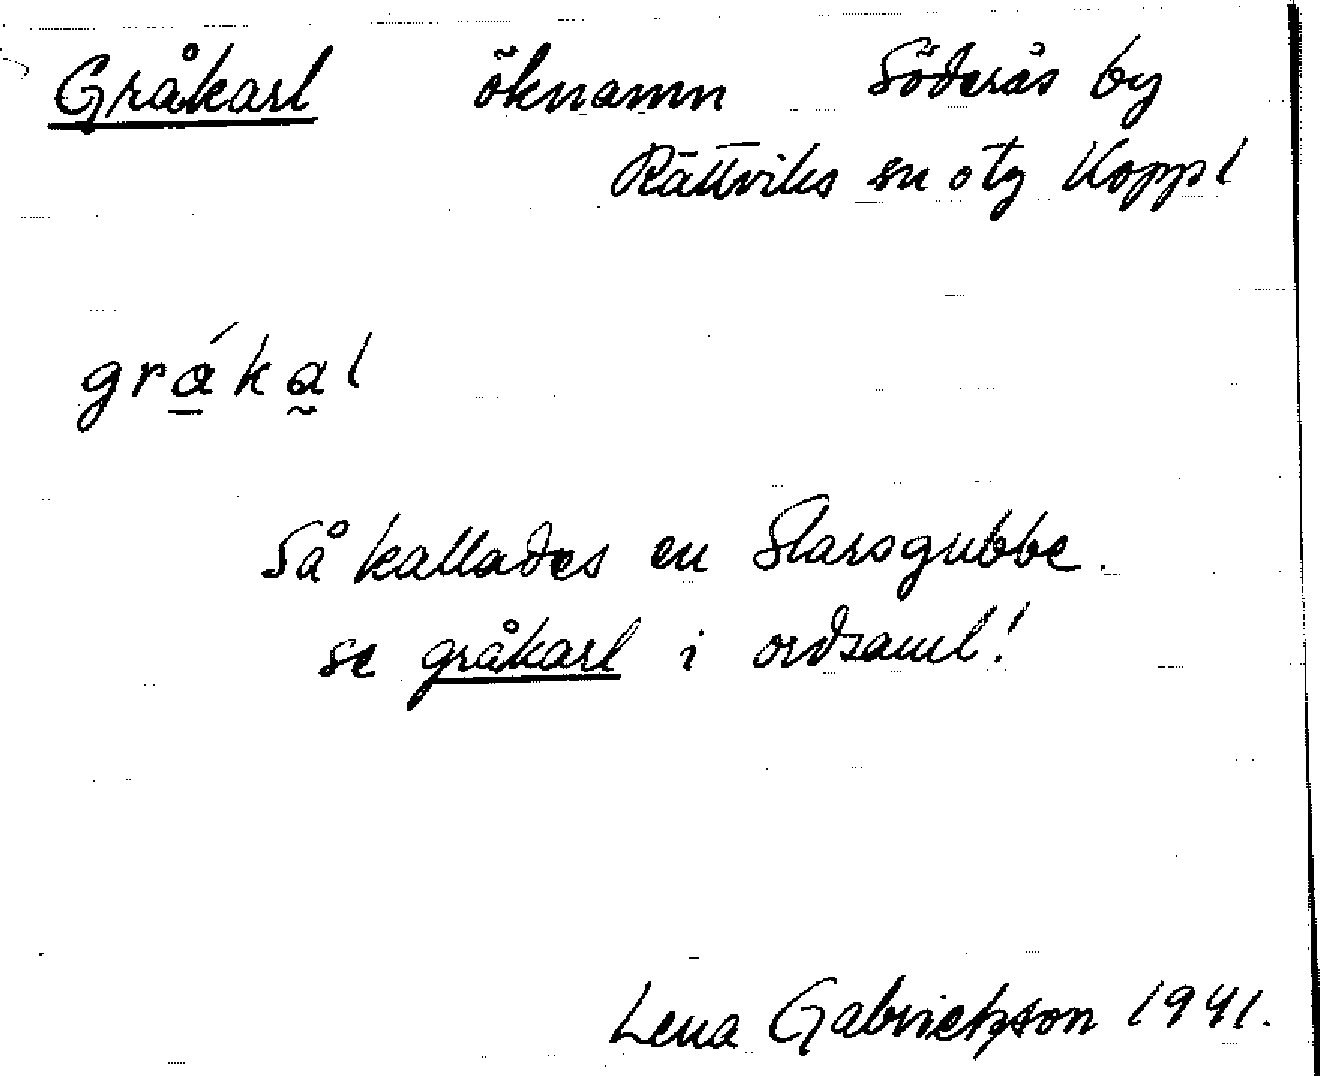 Gråkarl öknamn Söderås by
Rättviks sn o tg Koppl
grákal
Så kallades en Slarsgubbe.
se gråkarl i ordsaml!
Lena Gabrielsson 1941.